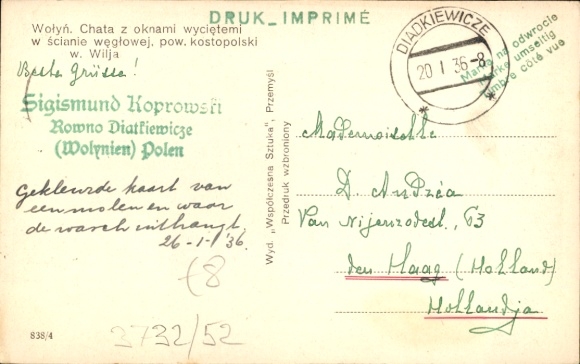 DRUK_IMPRIMÉ
Wołyń. Chata z oknami wyciętemi
w ścianie węgłowej, pow. kostopolski
w. Wilja
Beste Grüsse!
Sigismund Koprowski
Rowno Diatkiewicze
(Wolynien) Polen
Gekleurde kaart van
een molen en waar
de wasch uithangt.
26-1-'36.
DIADKIEWICZE
20 I 36-8
Marka na odwrocie
Marke umseitig
Timbre côté vue
Wyd. „Współczesna Sztuka", Przemyśl
Przedruk wzbroniony
Mademoiselle
D. Andréa
Van Nijenrodestr. 63
den Haag (Holland)
Hollandja
838/4
3732/52